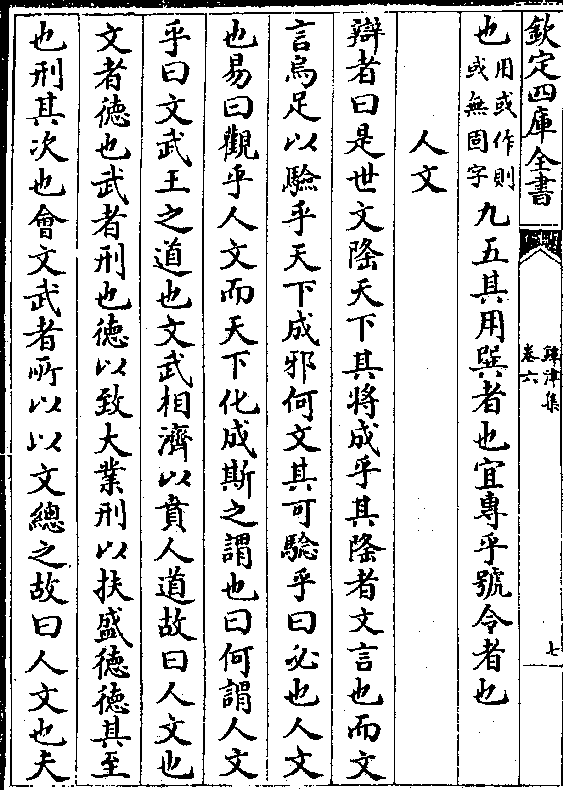 欽定四庫全書
鐔津集
卷六
七
也用或作則或無固字九五其用巽者也宜專乎號令者也
人文
辯者曰是世文隆天下其將成乎其隆者文言也而文
言烏足以驗乎天下成邪何文其可驗乎曰必也人文
也易曰觀乎人文而天下化成斯之謂也曰何謂人文
乎曰文武王之道也文武相濟以賁人道故曰人文也
文者徳也武者刑也徳以致大業刑以扶盛徳徳其至
也刑其次也會文武者所以以文總之故曰人文也夫